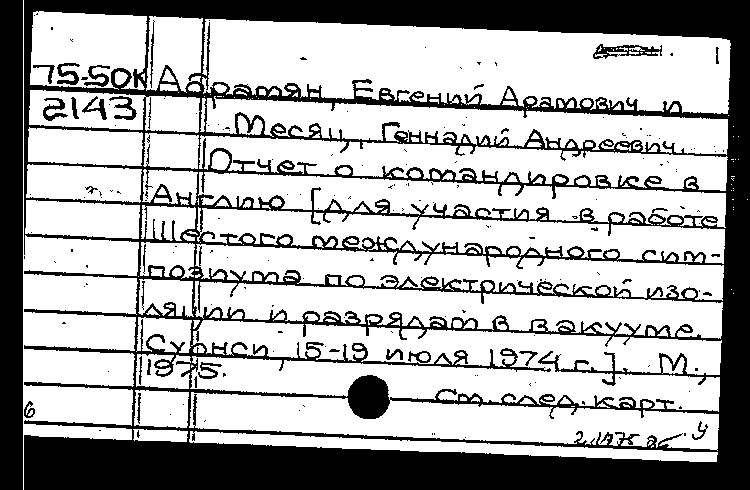 1
75-50К Абрамян, Евгений Арамович и
2143 Месяц, Геннадий Андреевич.
Отчет о командировке в
Англию [для участия в работе
Шестого международного сим-
позиума по электрической изо-
ляции и разрядам в вакууме.
Суонси, 15-19 июля 1974 г.]. М.,
1975.
См. след. карт.
6
у